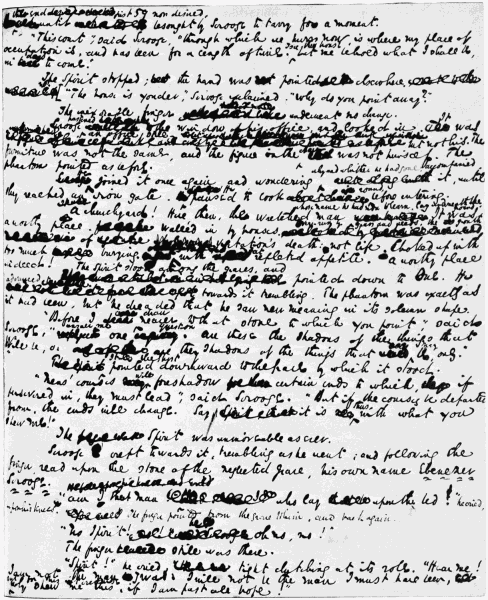 besought by Scrooge to tarry for a moment.
"This court," said Scrooge, "through which we hurry now, is where my place of
occupation is, and has been for a length of time. I see the house. Let me behold what I shall be,
in days to come."
The Spirit stopped; the hand was pointed elsewhere.
"The house is yonder," Scrooge exclaimed. "Why do you point away?"
The inexorable finger underwent no change.
Scrooge hastened to the window of his office, and looked in. It was
an office still, but not his. The
furniture was not the same, and the figure in the chair was not himself. The
phantom pointed as before.
He joined it once again, and wondering why and whither he had gone, accompanied it until
they reached an iron gate. He paused to look round before entering.
A churchyard. Here, then, the wretched man whose name he had now to learn, lay underneath the ground. It was
a worthy place. Walled in by houses, overrun by grass and weeds, the growth
of vegetation's death, not life; choked up with
too much burying; fat with repleted appetite. A worthy place
indeed!
The Spirit stood among the graves, and pointed down to One. He
advanced towards it trembling. The phantom was exactly as
it had been, but he dreaded that he saw new meaning in its solemn shape.
"Before I draw nearer to that stone to which you point," said
Scrooge, "answer me one question. Are these the shadows of the things that
Will be, or are they shadows of the things that May be, only?"
Still the Ghost pointed downward to the grave by which it stood.
"Men's courses will foreshadow certain ends, to which, if
persevered in, they must lead," said Scrooge. "But if the courses be departed
from, the ends will change. Say it is thus with what you
show me!"
The Spirit was immovable as ever.
Scrooge crept towards it, trembling as he went; and following the
finger, read upon the stone of the neglected grave, his own name, Ebenezer
Scrooge.
"Am I that man who lay upon the bed?" he cried,
upon his knees.
The finger pointed from the grave to him, and back again.
"No Spirit! Oh no, no!"
The finger still was there.
"Spirit!" he cried, tight clutching at its robe. "Hear me!
I am not the man I was. I will not be the man I must have been,
Why show me this, if I am past all hope?"